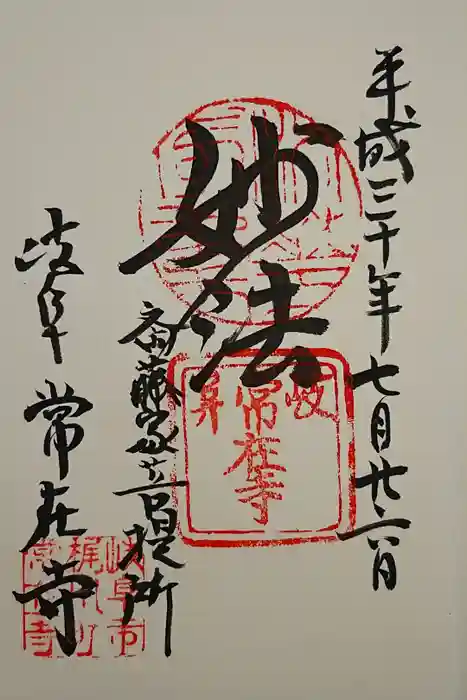 平成三十年七月廿六日
妙法
斎藤家菩提所
岐阜 常在寺
岐阜
常在寺
岐阜市
梶川町
常在寺